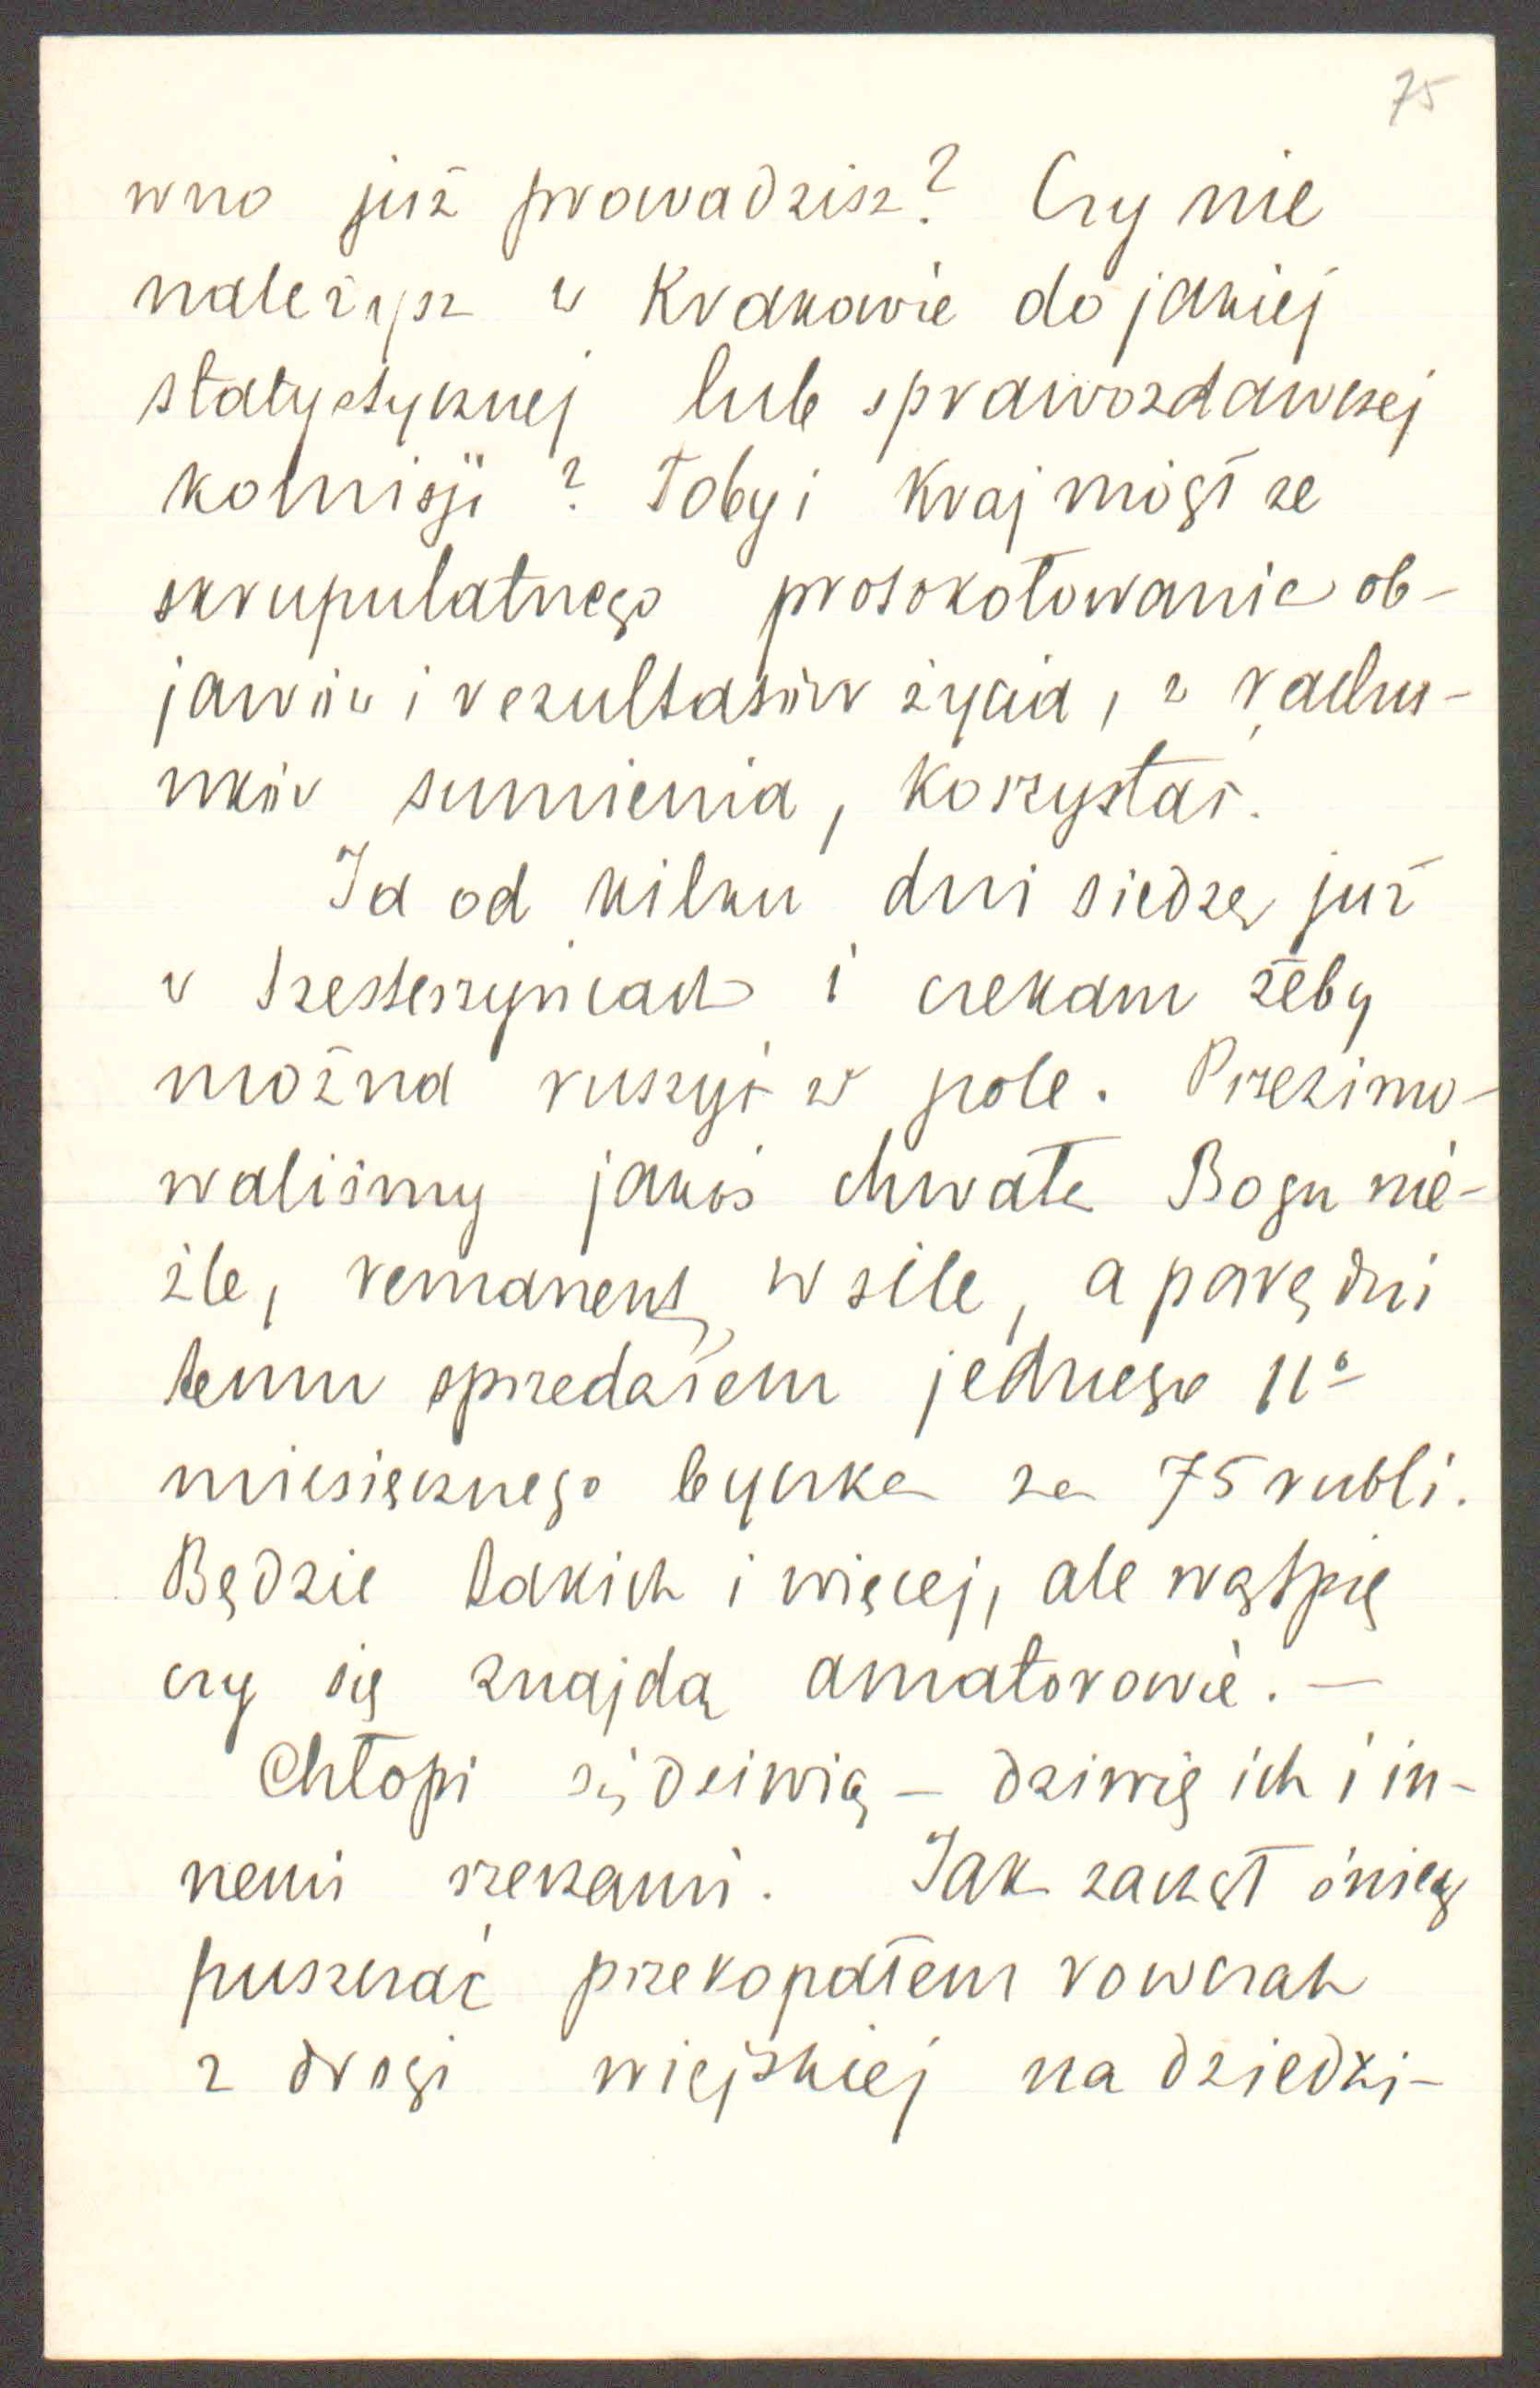 75
wno już prowadzisz? Czy nie
należysz w Krakowie do jakiej
statystycznej lub sprawozdawczej
komisji? Toby i Kraj mógł ze
skrupulatnego protokołowania ob-
jawów i rezultatów życia, z rachu-
nków sumienia, korzystać.
Ja od kilku dni siedzę już
w i czekam żeby
można ruszyć w pole. Przezimo-
waliśmy jakoś chwała Bogu nie-
źle, remanent w sile, a parę dni
temu sprzedałem jednego 11o
miesięcznego byczka za 75 rubli.
Będzie takich i więcej, ale wątpię
czy się znajdą amatorowie. —
Chłopi się dziwią – dziwię ich i in-
nemi rzeczami. Jak zaczął śnieg
puszczać przekopałem rowczak
z drogi wiejskiej na dziedzi-